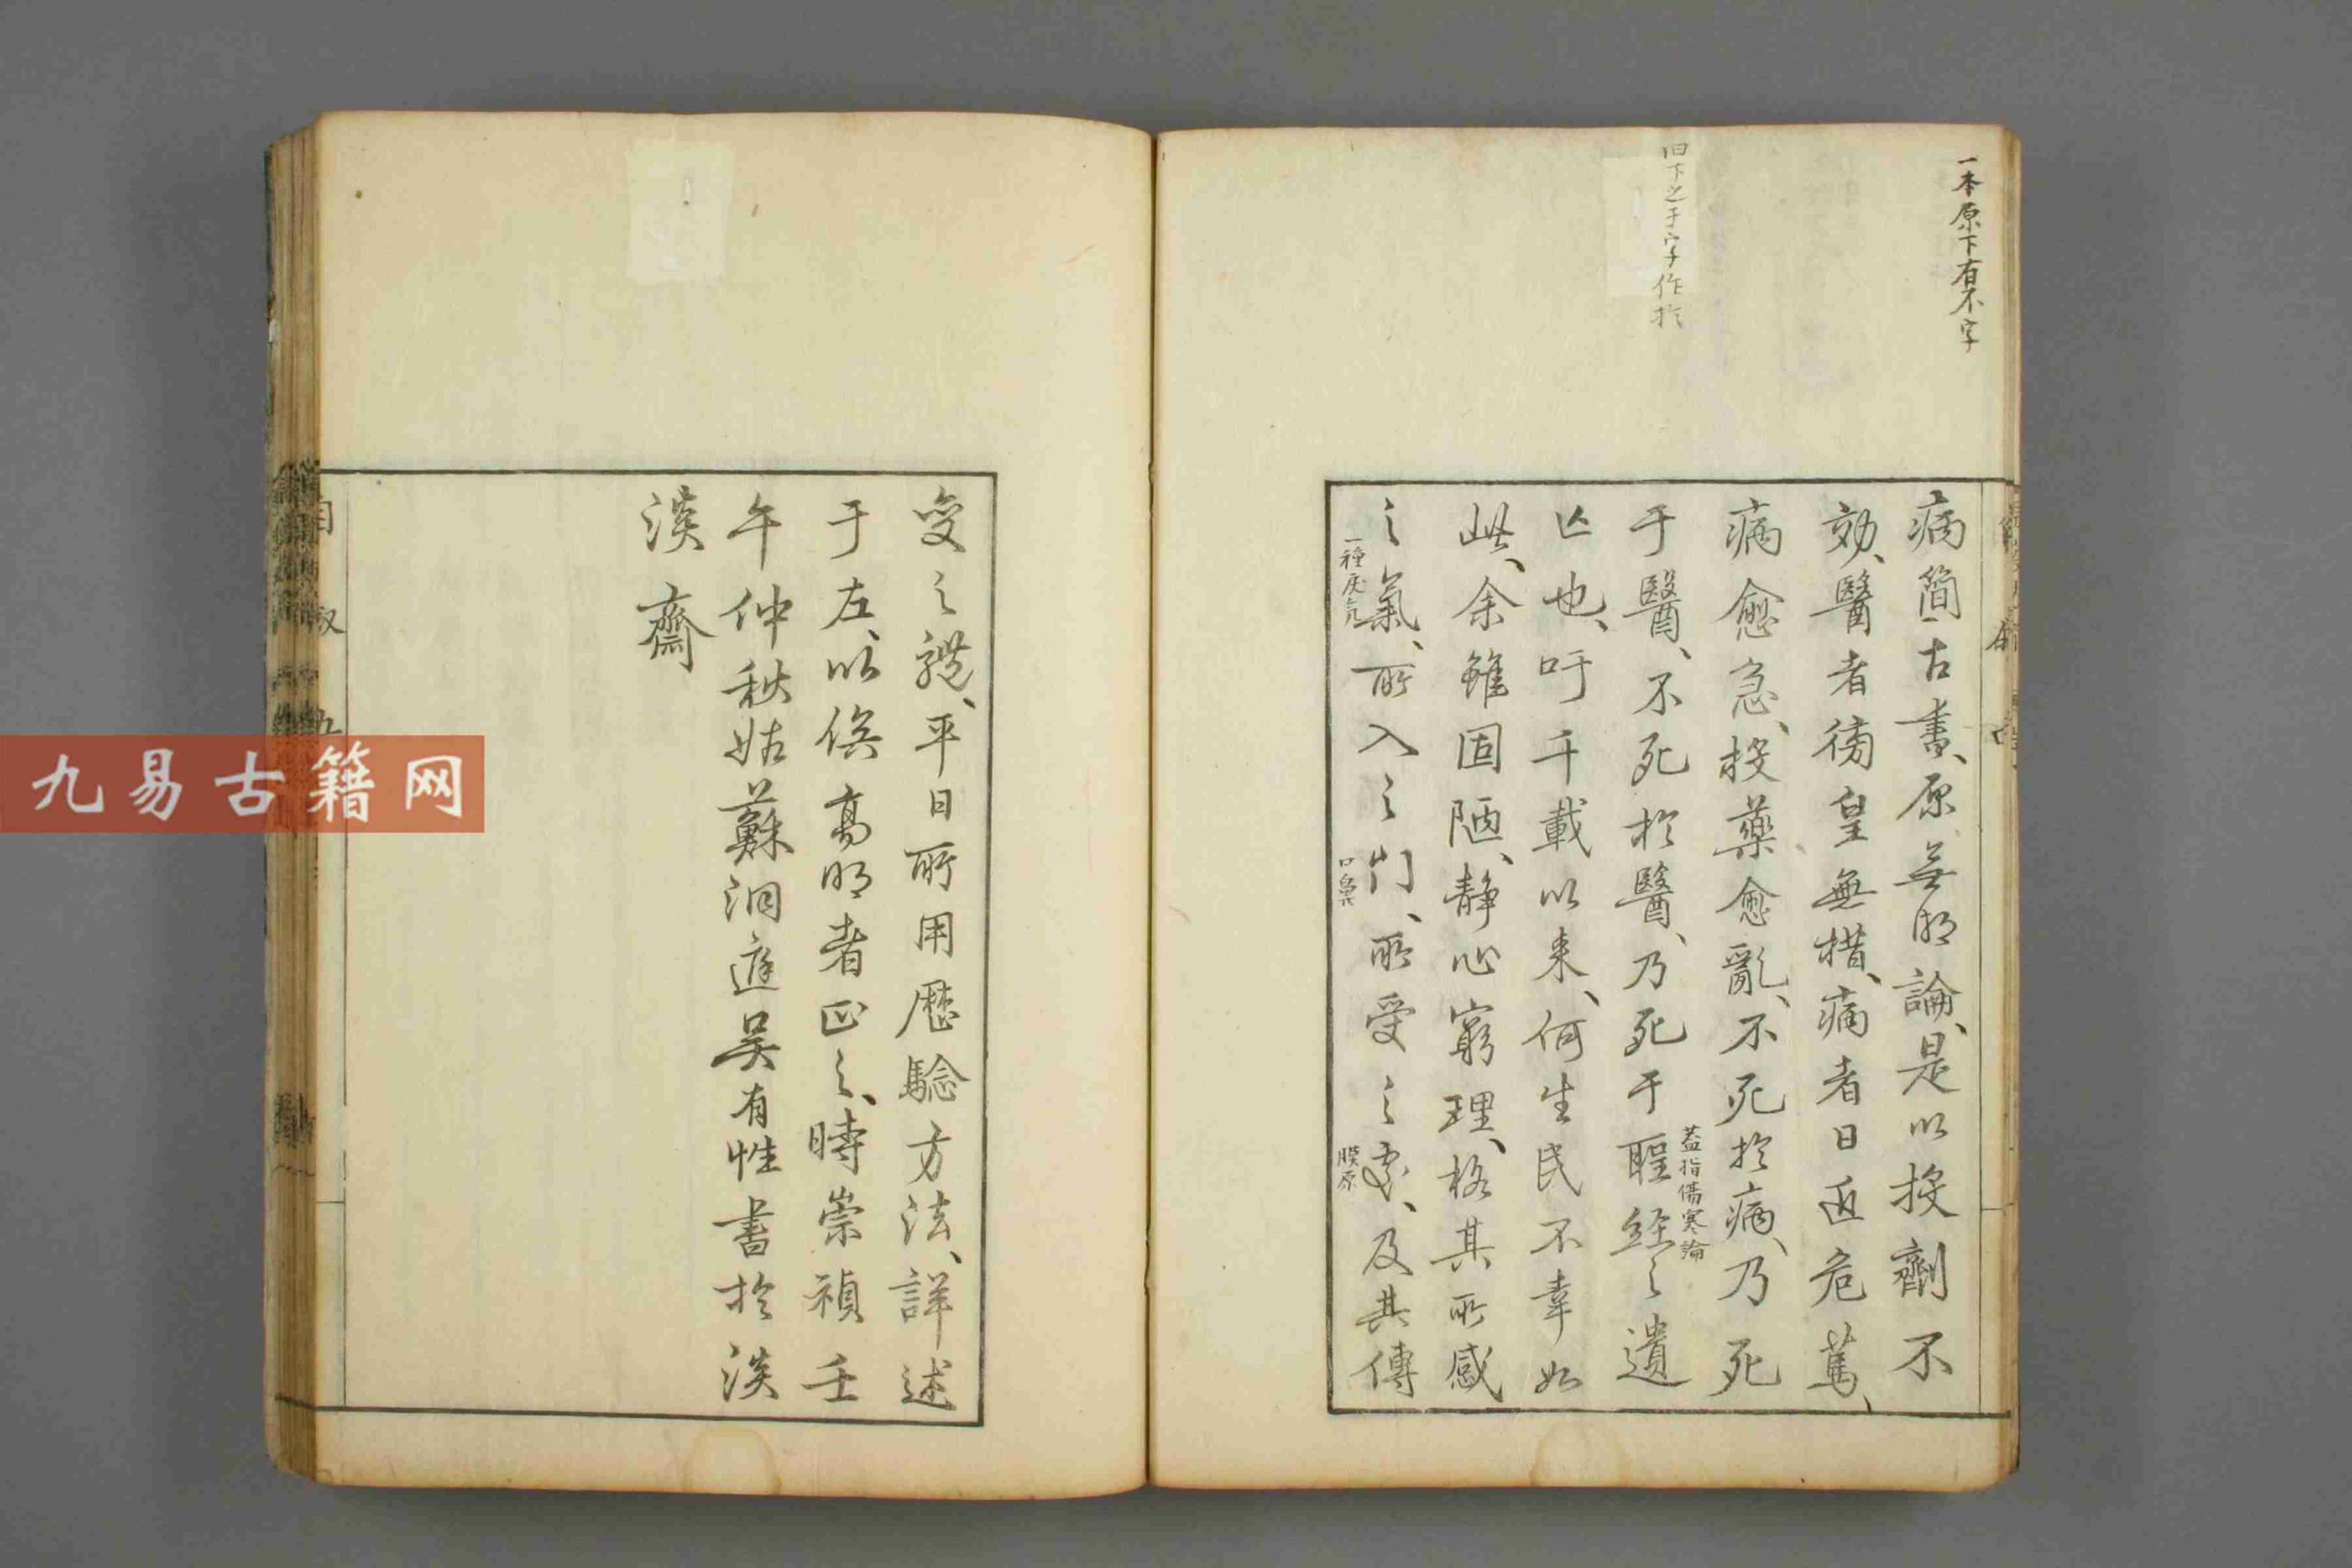 一本原下有不字
旧下之于字作於
病簡古書、原無明論、是以投劑不
効、醫者徬皇無措、病者日近危篤、
病愈急、投藥愈亂、不死於病、乃死
于醫、不死於醫、乃死于聖經之遺
蓋指傷寒論
亡也、吁千載以来、何生民不幸如
此、余雖固陋、静心窮理、格其所感
之氣、所入之门、所受之處、及其傳
一種戾気
口鼻
膜原
變之軆、平日所用歴驗方法、詳述
于左、以俟髙明者正之、時崇禎壬
午仲秋姑蘇洞庭吴有性書於淡
淡齋
自叙 五
九易古籍网